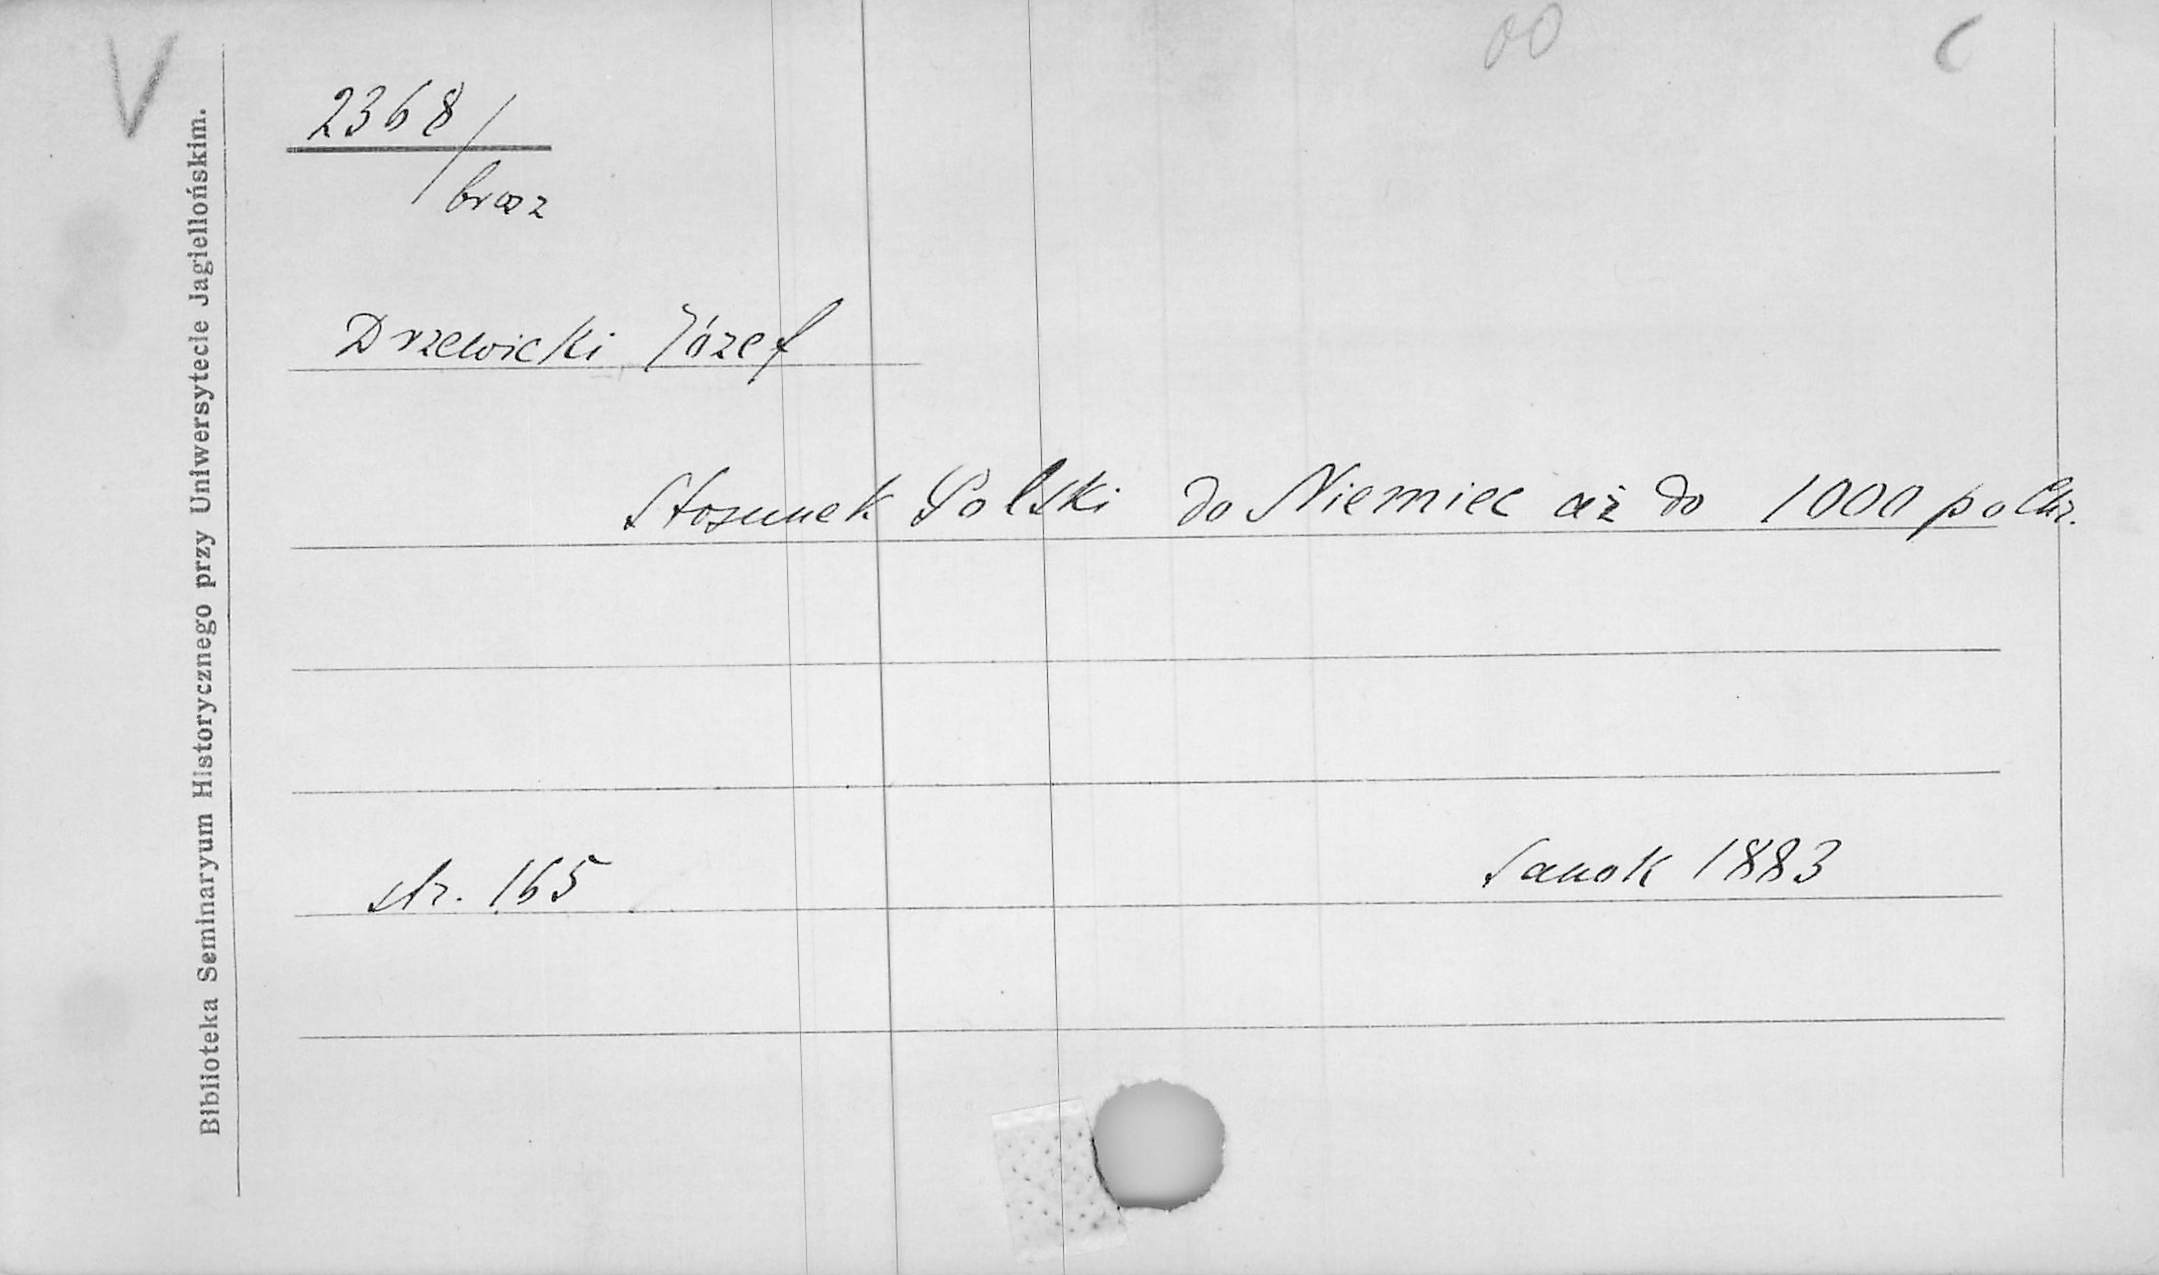 V
00
C
2368/
brosz
Drzewicki Józef
Stosunek Polski do Niemiec aż do 1000 po Chr.
str. 165
Sanok 1883
Biblioteka Seminaryum Historycznego przy Uniwersytecie Jagiellońskim.